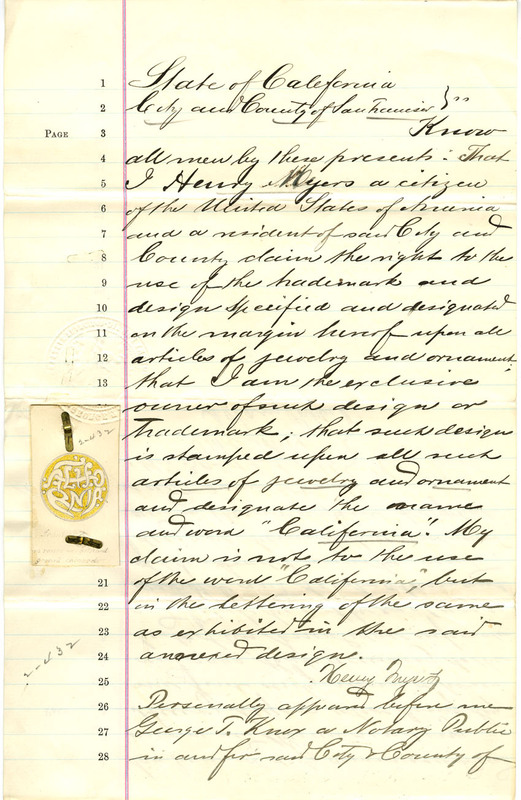 1 State of California
2 City and County of San Francisco } ss
PAGE 3 Know
4 all men by these presents: That
5 I Henry Myers a citizen
6 of the United States of America
7 and a resident of said City and
8 County claim the right to the
9 use of the trademark and
10 design specified and designated
11 on the margin hereof upon all
12 articles of jewelry and ornament;
13 that I am the exclusive
owner of such design or
trademark; that such design
is stamped upon all such
articles of jewelry and ornament
and designate the name
and word "California". My
claim is not to the use
21 of the word "California", but
22 in the lettering of the same
23 as exhibited in the said
24 annexed design.
25 Henry Myers
26 Personally appeared before me
27 George T. Knox a Notary Public
28 in and for said City & County of
2-432
CALIFORNIA
2-432